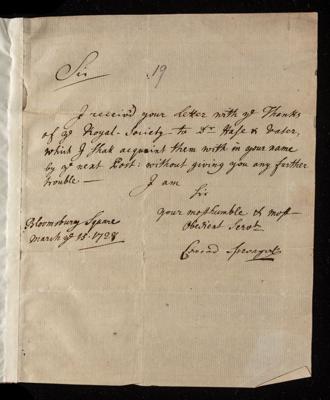 Sir 19
I receiv'd your letter with ye Thanks
of ye Royal-Society to Dr. Hase & Vater,
which I shall acquaint them with in your name
by ye next Post: without giving you any further
trouble.— I am
Sir
your most humble & most
Obedient Servt.
Bloomsbury Square
March ye 15. 1728
Conrad Sprengell